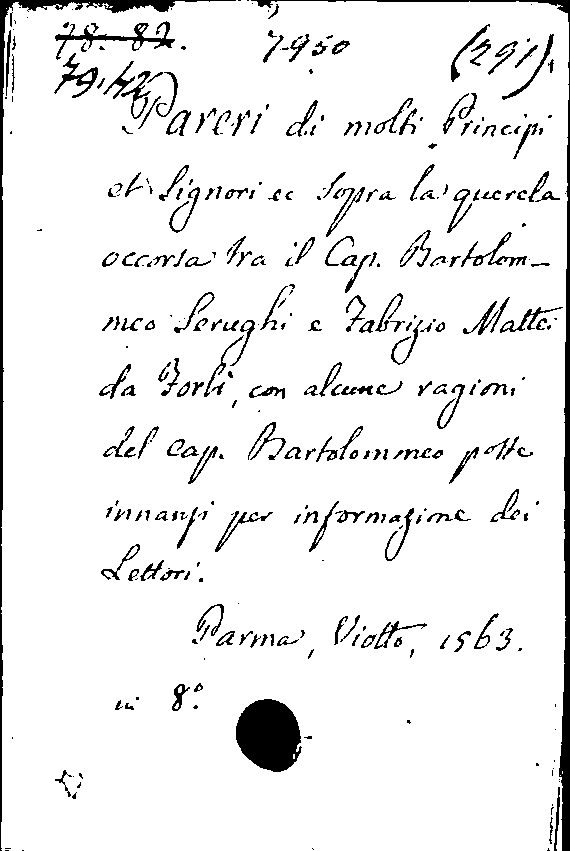 78. 82. 7950 (291).
79.42
Pareri di molti Principi
et Signori ec sopra la querela
occorsa tra il Cap. Bartolom-
meo Serughi e Fabrizio Mattei
da Forlì, con alcune ragioni
del Cap. Bartolommeo poste
innanzi per informazione dei
Lettori.
Parma, Viotto, 1563.
in 8.º